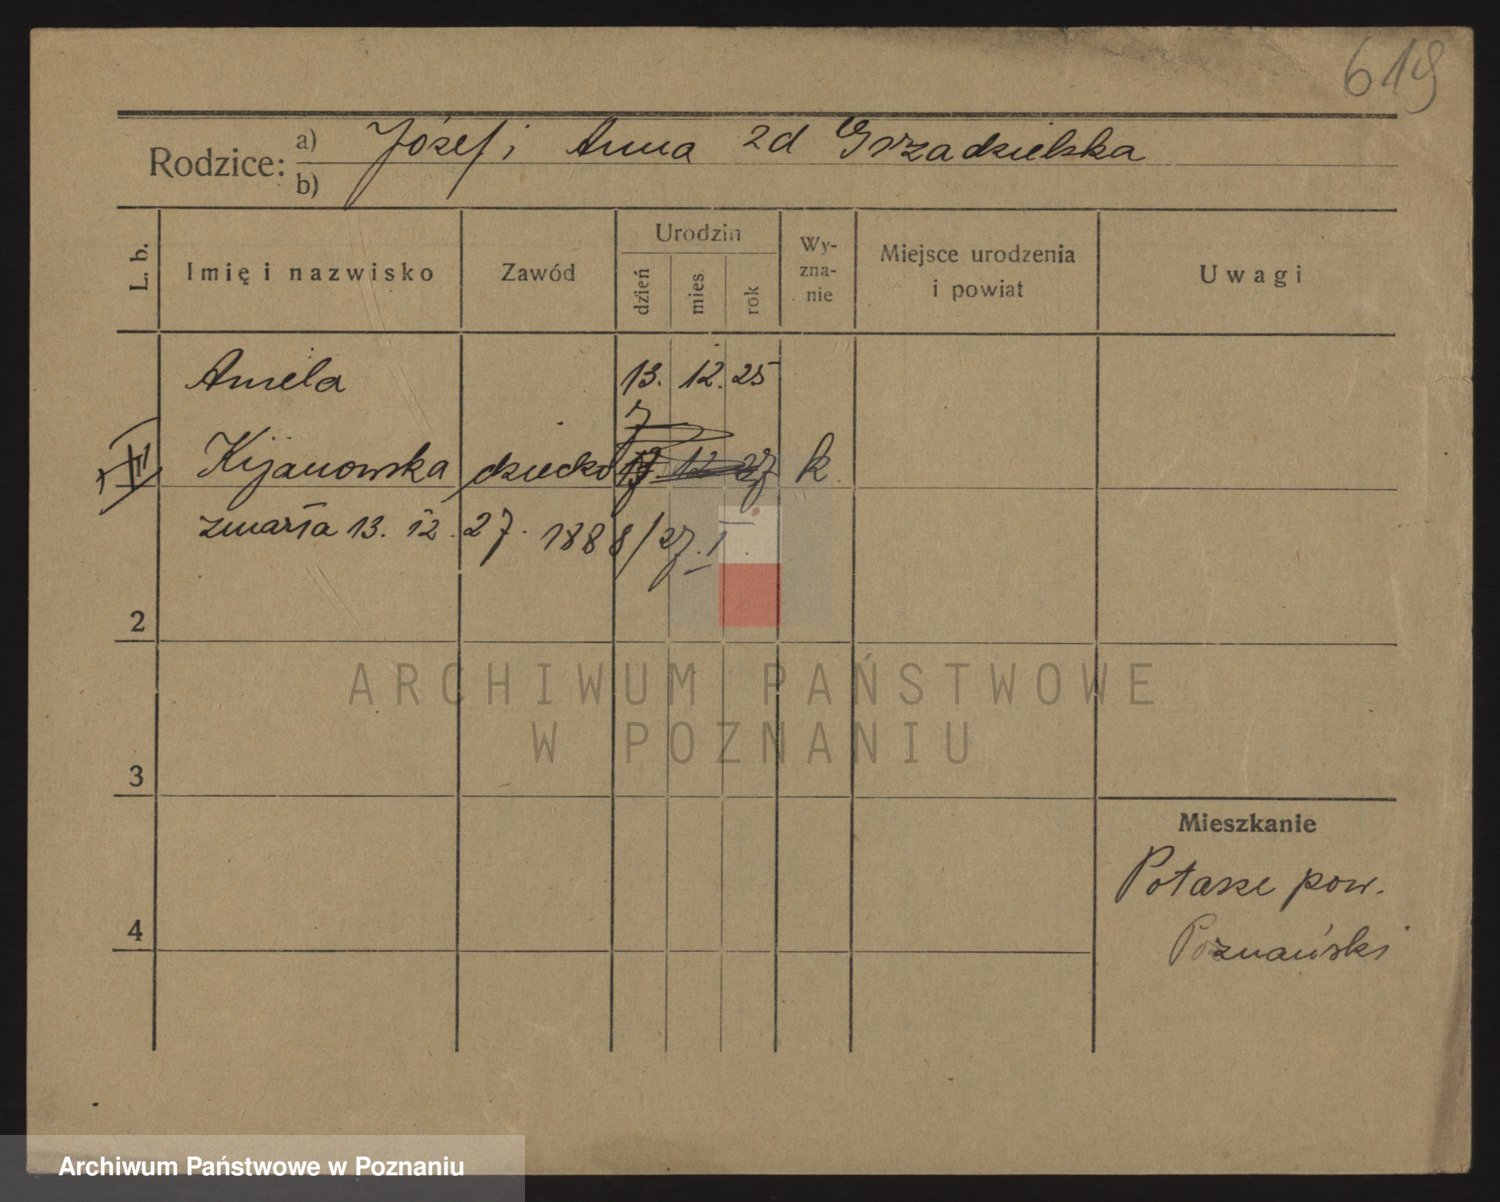 619
Rodzice: a) Józef i Anna zd Grządzielska
b)
L. b. Imię i nazwisko Zawód Urodzin dzień mies. rok Wy-zna-nie Miejsce urodzenia i powiat Uwagi
Aniela 13. 12. 25
7
Kijanowska dziecko 13 12 27 k
zmarła 13. 12. 27. 1888/27. I
2
ARCHIWUM PAŃSTWOWE
W POZNANIU
3
Mieszkanie
Potasze pow.
4 Poznański
Archiwum Państwowe w Poznaniu